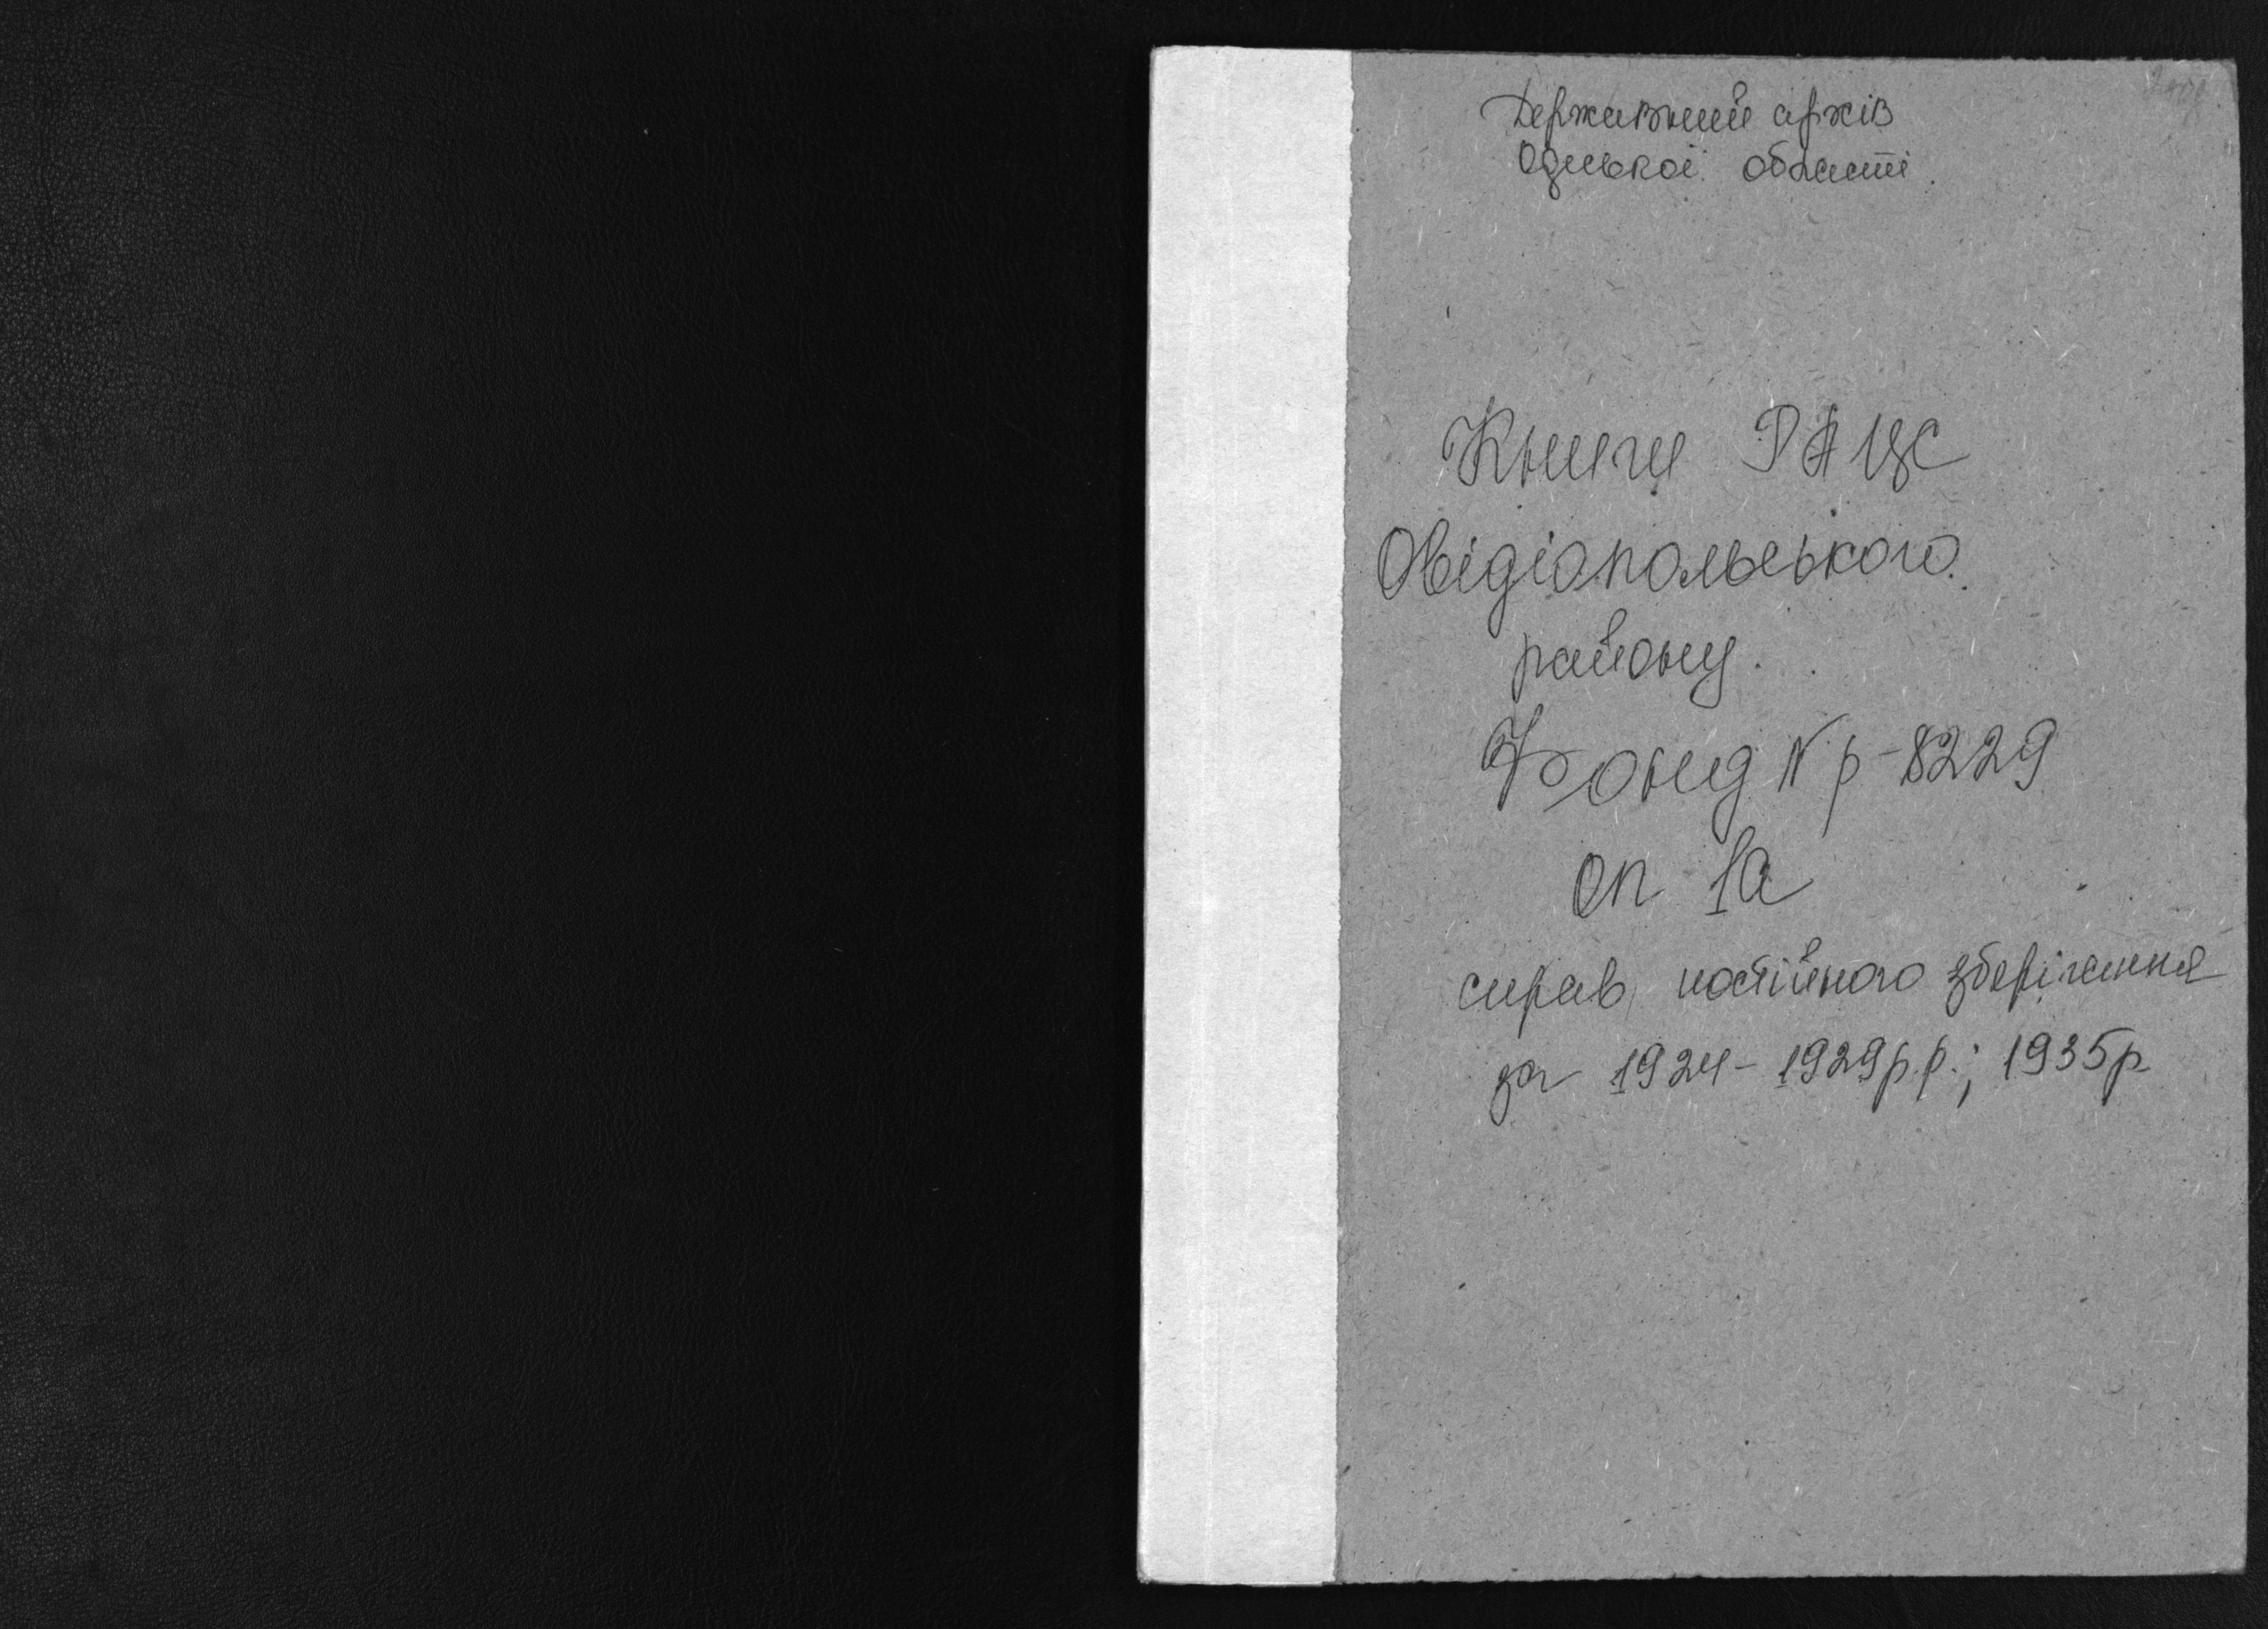 Державний архів
Одеської області.
Книги РАЦС
Овідіопольського
району.
Фонд N р-8229
оп 1а
справ постійного зберігання
за 1924-1929р.р.; 1935р.